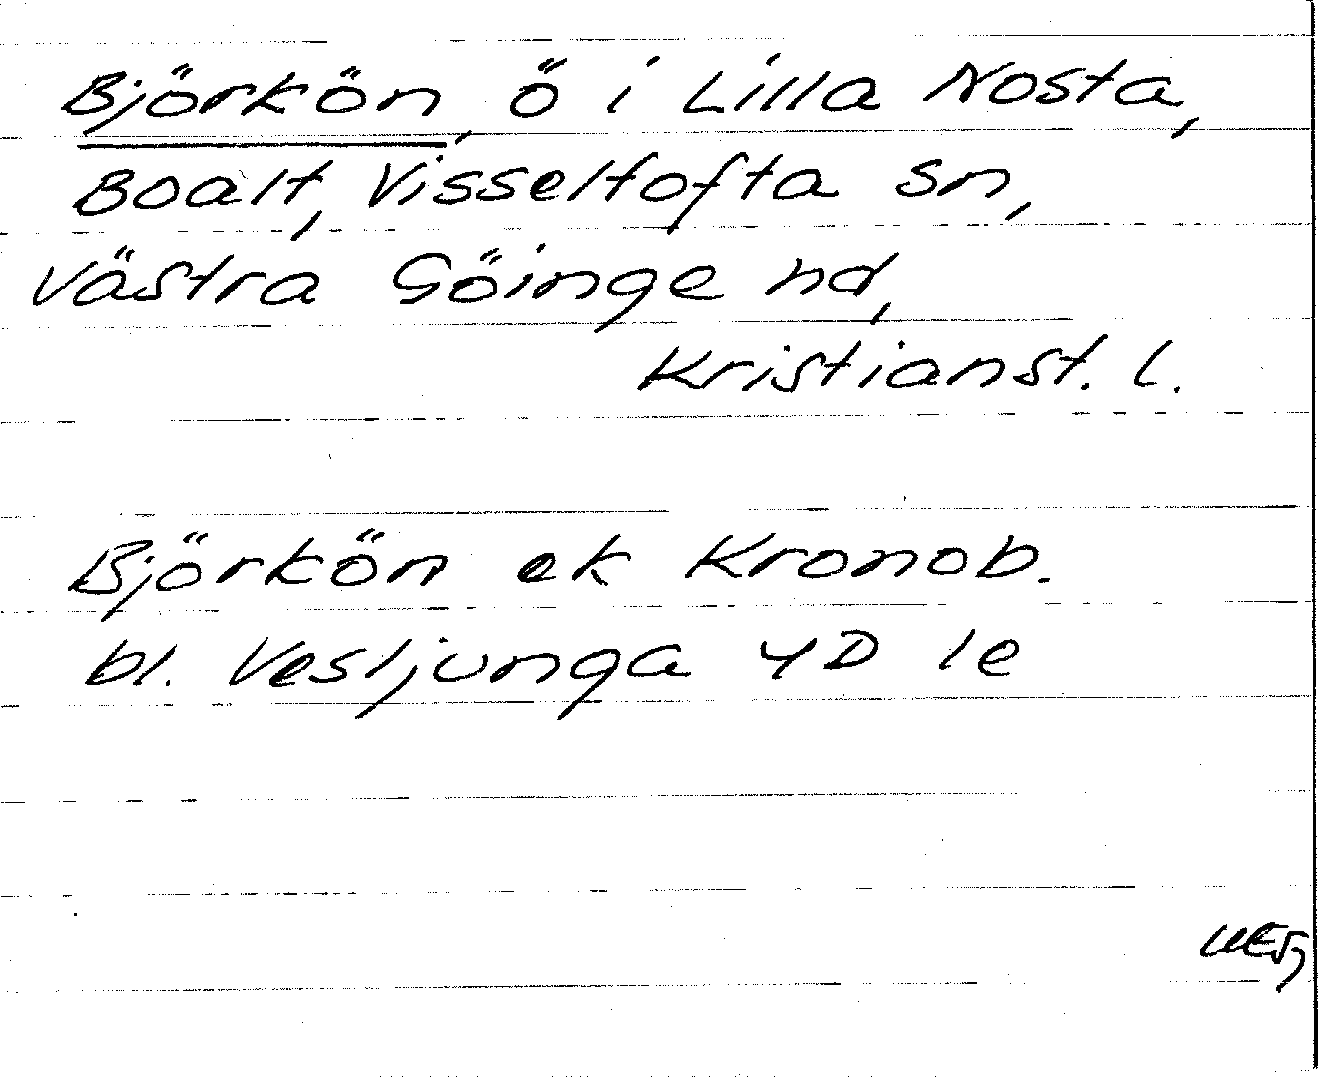 Björkön, ö i Lilla Nosta,
Boalt, Visseltofta sn,
Västra Göinge hd,
Kristianst. l.
Björkön ek Kronob.
bl. Vesljunga 4D 1e